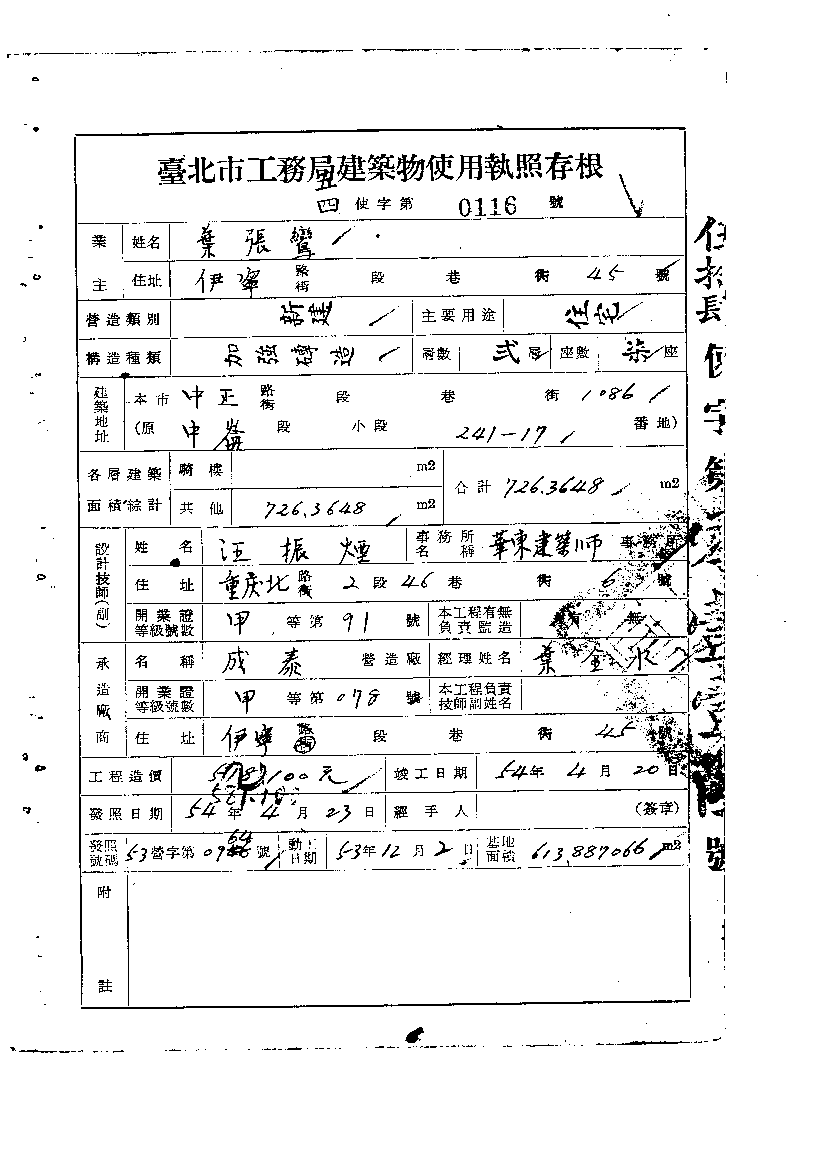 臺北市工務局建築物使用執照存根
五四 使字第 0116 號
業主 姓名 葉張鶯
住址 伊寧 路街 段 巷 街 45 號
營造類別 新建 主要用途 住宅
構造種類 加強磚造 層數 弍層 座數 柒座
建築地址 本市 中正 路街 段 巷 街 1086
(原 中崙 段 小段 241-17 番地)
各層建築面積綜計 騎樓 m2 合計 726.3648 m2
其他 726.3648 m2
設計技師(副) 姓名 汪振煙 事務所名稱 華東建築師 事務所
住址 重庆北 路街 2 段 46 巷 街 6 號
開業證等級號數 甲 等第 91 號 本工程有無負責監造 無
承造廠商 名稱 成泰 營造廠 經理姓名 葉金水
開業證等級號數 甲 等第 078 號 本工程負責技師副姓名
住址 伊寧 路街 段 巷 街 45 號
工程造價 100元 竣工日期 54年 4月 20日
發照日期 54年 4月 23日 經手人 (簽章)
發照號碼 53營字第 號 動工日期 53年12月2日 基地面積 613.887066 m2
附註
使字第
號